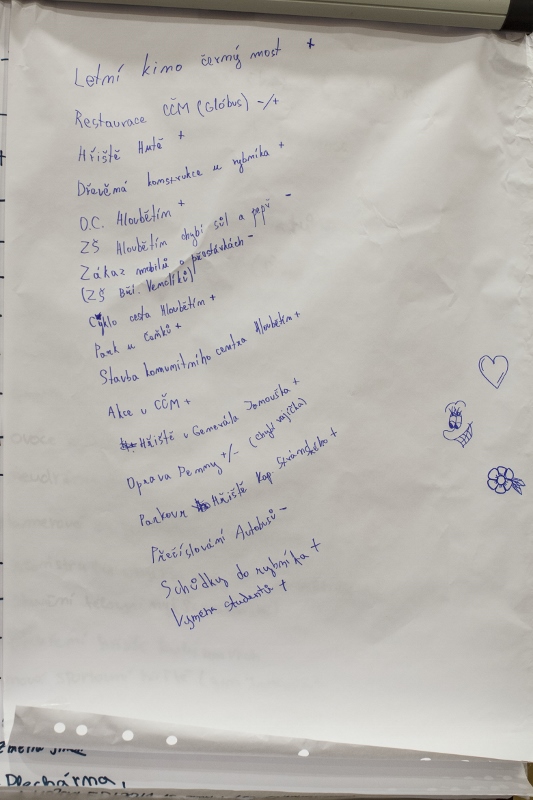 Letní kino černý most +
Restaurace CČM (Glóbus) -/+
Hřiště Hutě +
Dřevěná konstrukce u rybníka +
O.C. Hloubětím +
ZŠ Hloubětím chybí sůl a pepř -
Zákaz mobilů o přestávkách -
(ZŠ Bří. Venclíků)
Cyklo cesta Hloubětím +
Park u Čeňků +
Stavba komunitního centra Hloubětim +
Akce v CČM +
Hřiště u Generála Janouška +
Oprava Penny +/- (chybí vajíčka)
Parkour Hřiště Kap. Stránského +
Přečíslování Autobusů -
Schůdky do rybníka +
Vymena studentů +
Plechárna,